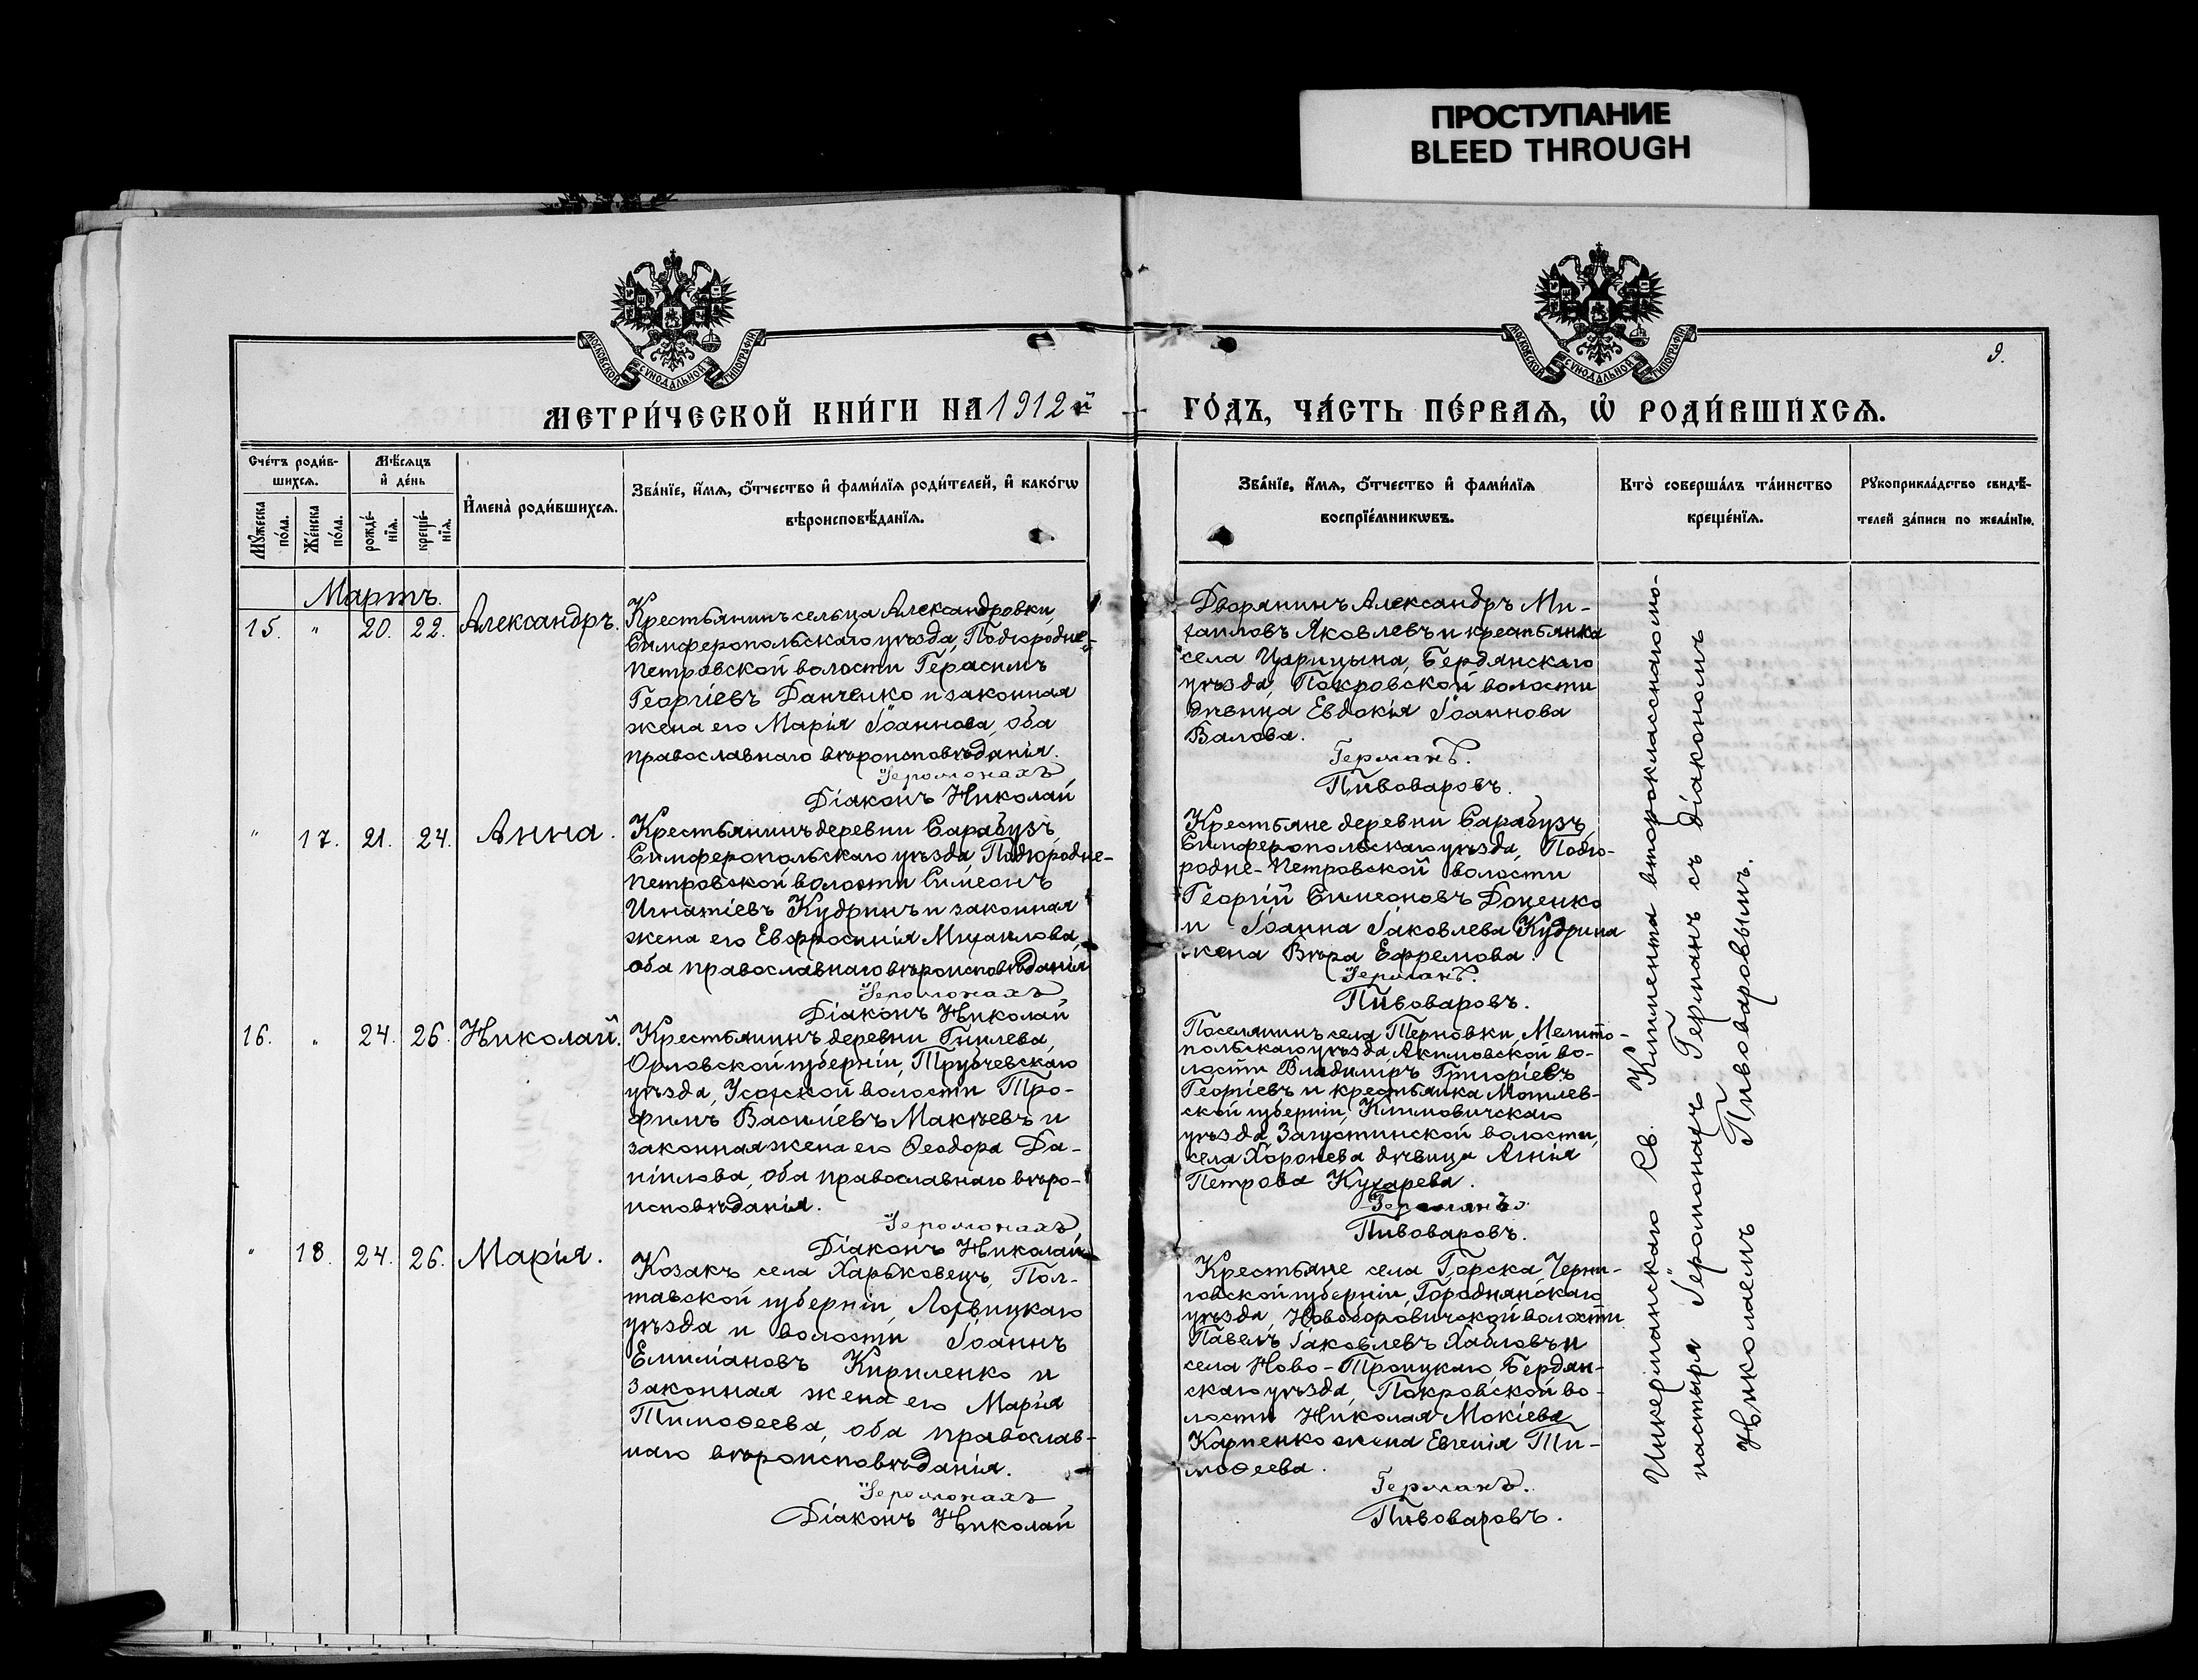 ПРОСТУПАНИЕ
BLEED THROUGH
МОСКОВСКОЙ СѴНОДАЛЬНОЙ ТИПОГРАФІИ
МОСКОВСКОЙ СѴНОДАЛЬНОЙ ТИПОГРАФІИ
9.
МЕТРИ́ЧЕСКОЙ КНИ́ГИ НА 1912 й
ГО́ДЪ, ЧА́СТЬ ПЕ́РВАѦ, Ѡ РОДИ́ВШИХСѦ.
Сче́тъ роди́в-
шихсѧ.
Мꙋ́жеска по́ла.
Же́нска по́ла.
Мѣ́сѧцъ
и҆ де́нь
рожде́-
нїѧ.
креще́-
нїѧ.
И҆мена̀ роди́вшихсѧ.
Зва́нїе, и҆́мѧ, ѻ҆́тчество и҆ фами́лїѧ роди́телей, и҆ како́гѡ
вѣроисповѣ́данїѧ.
Зва́нїе, и҆́мѧ, ѻ҆́тчество и҆ фами́лїѧ
воспрїе́мникѡвъ.
Кто̀ соверша́лъ та́инство
креще́нїѧ.
Рꙋкоприкла́дство свидѣ́-
телей за́писи по жела́нїю.
Мартъ.
15. " 20. 22. Александръ.
Крестьянинъ сельца Александровки,
Симферопольскаго уѣзда, Подгородне-
Петровской волости Герасимъ
Георгіевъ Данченко и законная
жена его Марія Іоаннова, оба
православнаго вѣроисповѣданія.
Іеромонахъ
Діаконъ Николай
Дворянинъ Александръ Ми-
хаиловъ Яковлевъ и крестьянка
села Царицына, Бердянскаго
уѣзда, Покровской волости
дѣвица Евдокія Іоаннова
Валова.
Германъ.
Пивоваровъ.
" 17. 21. 24. Анна.
Крестьянинъ деревни Сарабузъ,
Симферопольскаго уѣзда, Подгородне-
Петровской волости Симеонъ
Игнатіевъ Кудринъ и законная
жена его Евфросинія Михаилова,
оба православнаго вѣроисповѣданія
Іеромонахъ
Діаконъ Николай
Крестьяне деревни Сарабузъ,
Симферопольскаго уѣзда, Подго-
родне-Петровской волости
Георгій Симеоновъ Доценко
и Іоанна Іаковлева Кудрина
жена Вѣра Ефремова.
Германъ.
Пивоваровъ.
16. " 24. 26. Николай.
Крестьянинъ деревни
Орловской губерніи, Трубчевскаго
уѣзда, волости Тро-
фимъ Василіевъ Макѣевъ и
законная жена его Ѳеодора Да-
ніилова, оба православнаго вѣро-
исповѣданія.
Іеромонахъ
Діаконъ Николай
Поселянинъ села Терновки, Мелито-
польскаго уѣзда, Акимовской во-
лости Владиміръ Григоріевъ
Георгіевъ и крестьянка Могилев-
ской губерніи, Климовичскаго
уѣзда, Загустинской волости,
села Хоронева дѣвица Агнія
Петрова Кухарева.
Германъ.
Пивоваровъ.
" 18. 24. 26. Марія.
Козакъ села Харьковецъ, Пол-
тавской губерніи, Лохвицкаго
уѣзда и волости Іоаннъ
Емиліановъ Кириленко и
законная жена его Марія
Тимоѳеева, оба православ-
наго вѣроисповѣданія.
Іеромонахъ
Діаконъ Николай
Крестьяне села Горска Черни-
говской губерніи, Городнянскаго
уѣзда, Новоборовичской волости
Павелъ Іаковлевъ и
села Ново-Троицкаго, Бердян-
скаго уѣзда, Покровской во-
лости Николая Мокіева
Карпенко жена Евгенія Ти-
моѳеева.
Германъ.
Пивоваровъ.
Инкерманскаго Св. Климента второкласснаго мо-
настыря Іеромонахъ Германъ съ діакономъ
Николаемъ Пивоваровымъ.